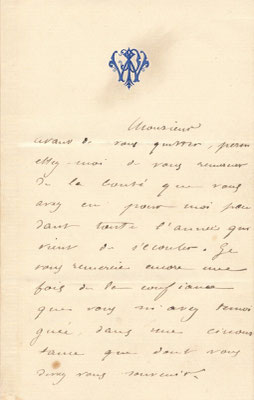 Monsieur
avant de vous quitter, perm
ettez-moi de vous remercier
de la bonté que vous
avez eu pour moi pen
dant toute l'année qui
vient de s'écouler. Je
vous remercie encore une
fois de la confiance
que vous m'avez témoi
gnée, dans une circons
tance que dont vous
devez vous souvenir.